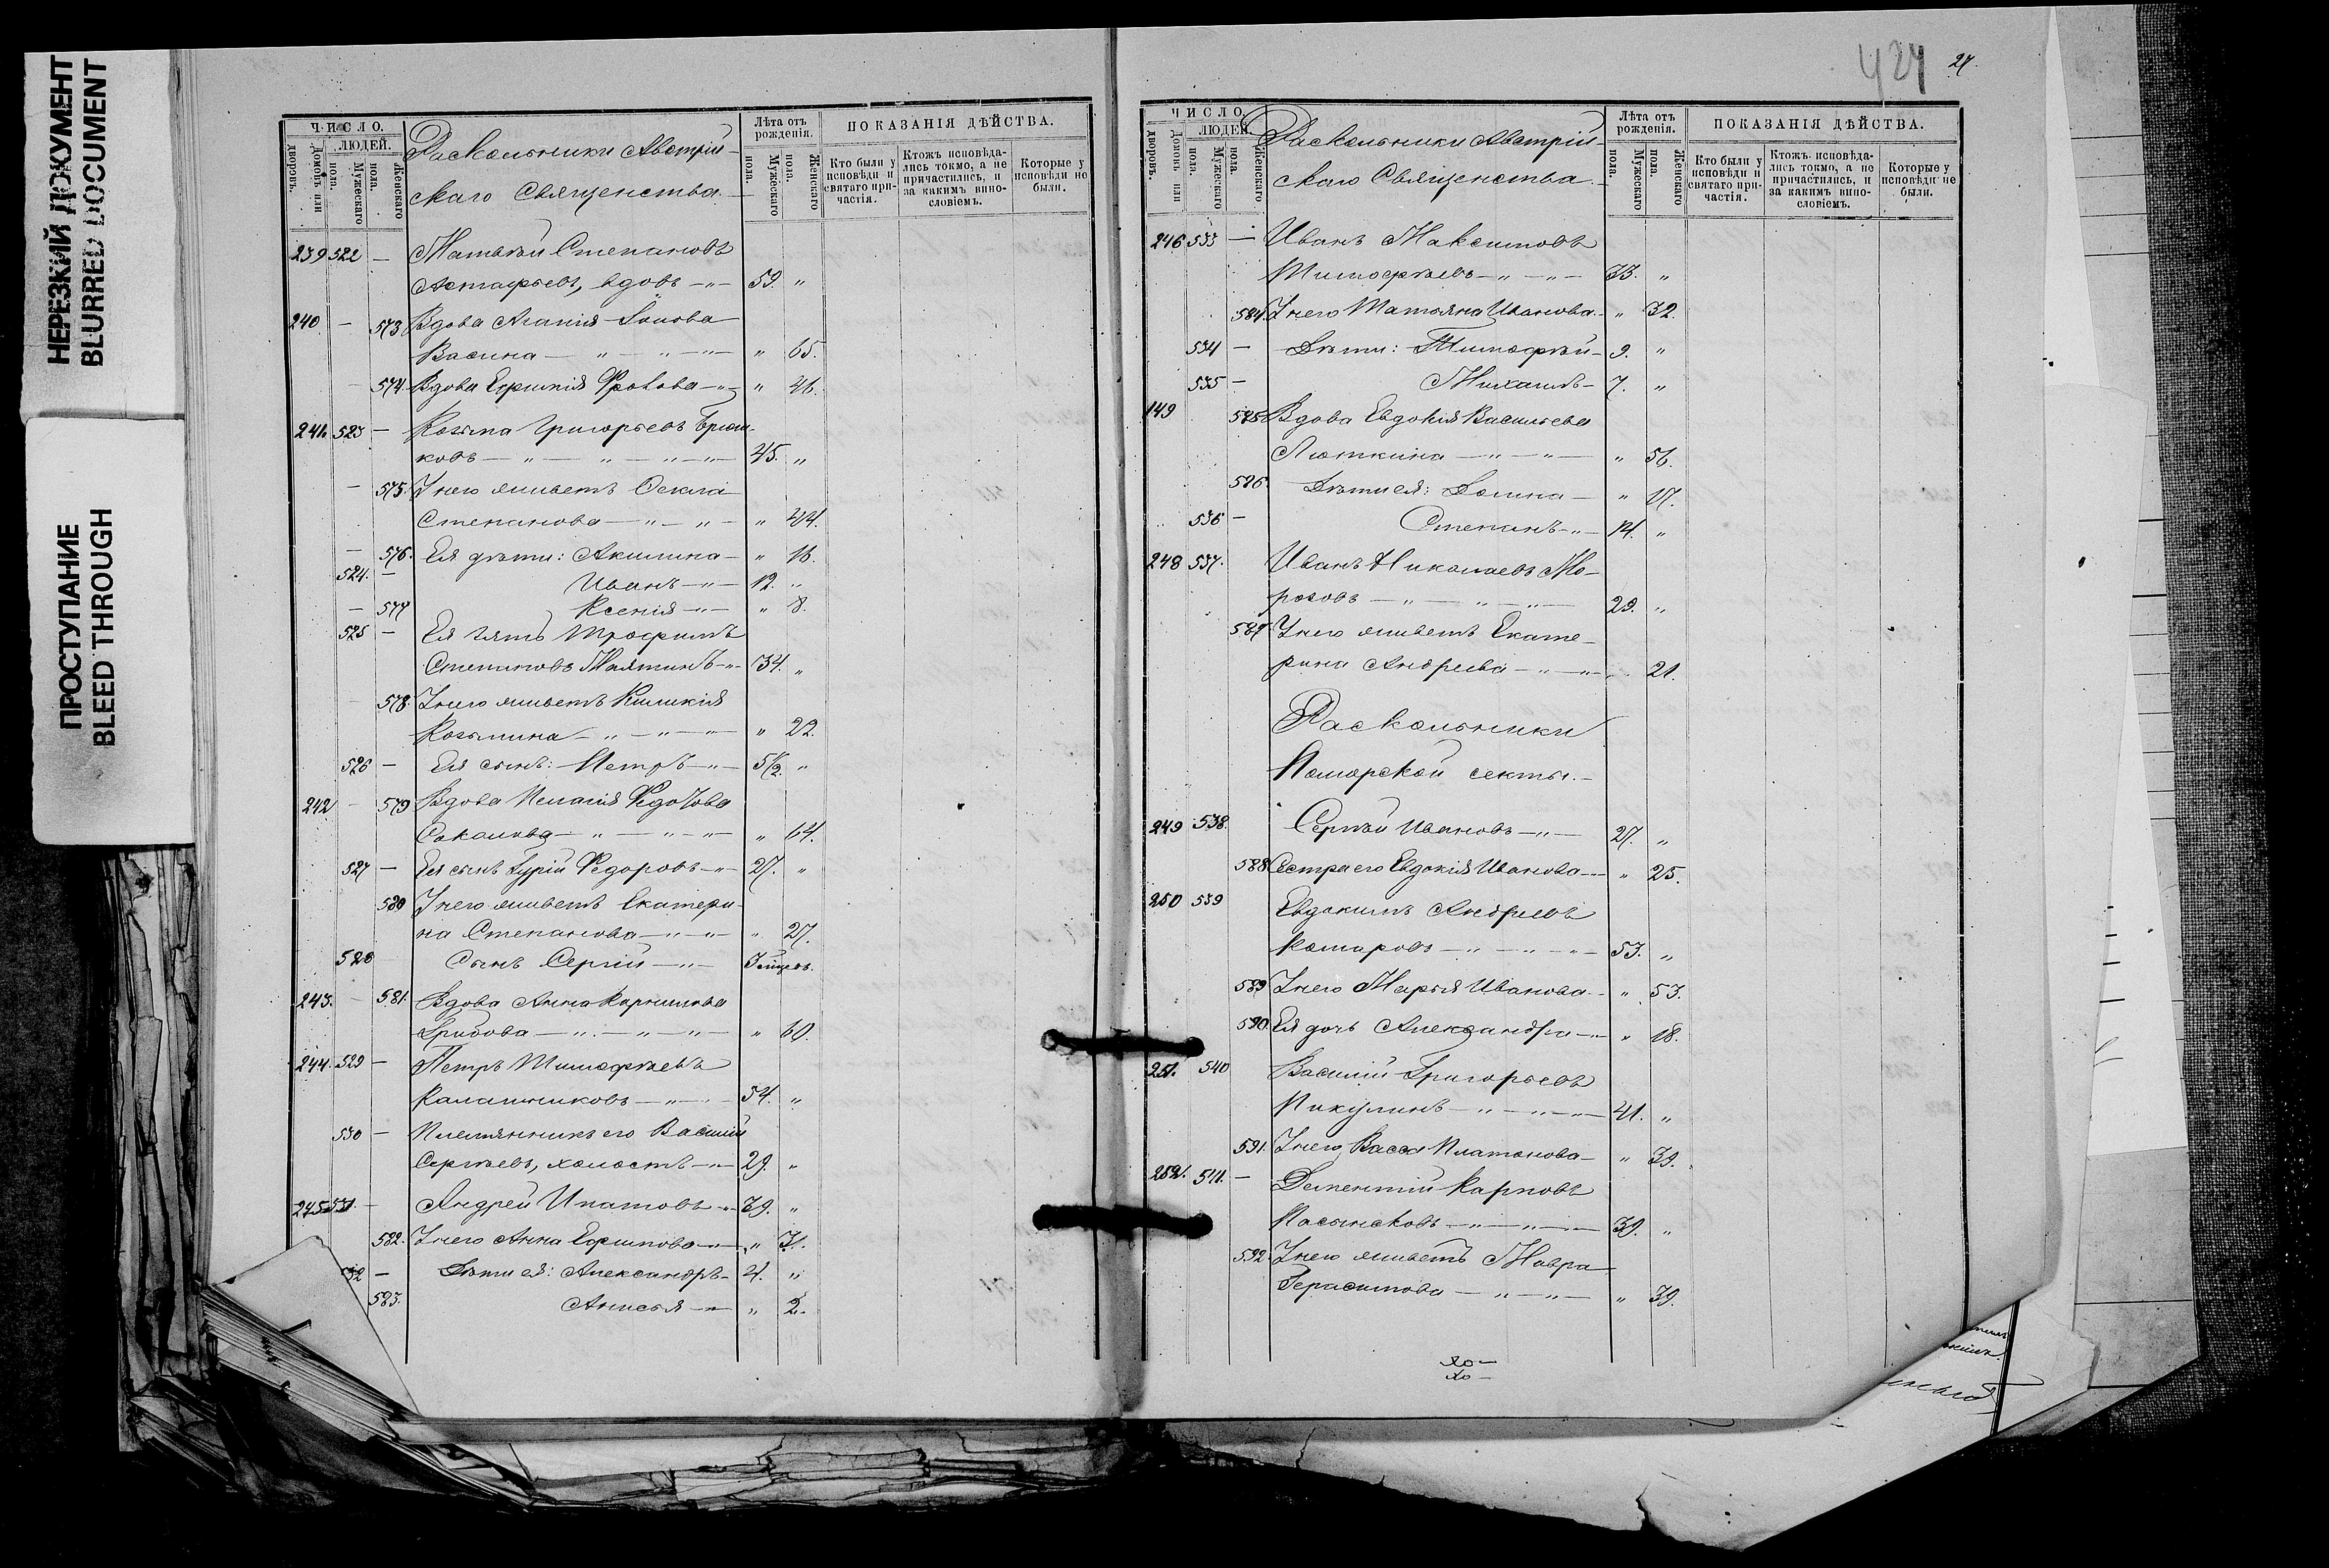 НЕРЕЗКИЙ ДОКУМЕНТ
BLURRED DOCUMENT
ПРОСТУПАНИЕ
BLEED THROUGH
ЧИСЛО.
ЛЮДЕЙ.
Домовъ или дворовъ.
Мужескаго пола.
Женскаго пола.
Раскольники Австрій-
скаго Священства.
Лѣта отъ рожденія.
Мужескаго пола.
Женскаго пола.
ПОКАЗАНІЯ ДѢЙСТВА.
Кто были у исповѣди и святаго причастія.
Ктожъ исповѣда-лись токмо, а не причастились, и за какимъ вино-словіемъ.
Которые у исповѣди не были.
239 522 — Матвѣй Степановъ
Астафьевъ, вдовъ —„— 59. „
240 — 573 Вдова Агапія Іонова
Васина — „ — „ — „ — „ 65.
— 574. Вдова Ефимія Фролова —„— „ 46.
241. 523 — Козьма Григорьевъ Брюш-
ковъ — „ — „ — „ — 45. „
— 575. У него живетъ Оекла
Степанова — „ — „ — „ 44.
— 576. Ея дѣти: Акилина — „ 16.
524. — Иванъ —„— 12. „
— 577 Ксенія —„— „ 8.
525 — Ея зять Трофимъ
Степановъ Малтинъ —„— 34. „
578. У него живетъ Киликія
Козьмина — „ — „ — „ 22.
526 — Ея сынъ: Петръ —„— 5½. „
242 — 579 Вдова Пелагія Федотова
Соколова — „ — „ — „ 64.
527 — Ея сынъ Гурій Федоровъ —„— 27. „
580 У него живетъ Екатери-
на Степанова —„—„— „ 27.
528 Сынъ Сергій —„—
243. — 581. Вдова Анна Корнилова
Грибова — „ — „ — „ — „ 60.
244. 529 — Петръ Тимофѣевъ
Калашниковъ —„— 54. „
530 — Племянникъ его Василій
Сергѣевъ, холостъ —„— 29. „
245 531. — Андрей Ипатовъ —„— 39. „
582. У него Анна Ефимова —„— „ 31.
532 — Дѣти ея: Александръ — 4. „
583. Анисья —„— „ 2.
424 27.
ЧИСЛО.
ЛЮДЕЙ.
Домовъ или дворовъ.
Мужескаго пола.
Женскаго пола.
Раскольники Австрій-
скаго Священства.
Лѣта отъ рожденія.
Мужескаго пола.
Женскаго пола.
ПОКАЗАНІЯ ДѢЙСТВА.
Кто были у исповѣди и святаго причастія.
Ктожъ исповѣда-лись токмо, а не причастились, и за какимъ вино-словіемъ.
Которые у исповѣди не были.
246 533 — Иванъ Максимовъ
Тимофѣевъ —„—„— 33. „
584. У него Татьяна Иванова. — „ 32.
534 — Дѣти: Тимофѣй — 9. „
535 — Михаилъ — 7. „
149 585 Вдова Евдокія Васильева
Люткина —„—„— „ 56.
586. Дѣти ея: Домна — „ 17.
536 — Степанъ —„— 14. „
248 537. Иванъ Николаевъ Мо-
розовъ — „ — „ — „ — 29. „
587 У него живетъ Екате-
рина Андреева —„—„— 21.
Раскольники
Поморской секты. —
249 538. Сергѣй Ивановъ —„— 27. „
588 Сестра его Евдокія Иванова — „ 25.
250 539 Евдокимъ Андреевъ
Комаровъ —„—„—„— 53. „
589 У него Марья Иванова — „ 53.
590. Ея дочь Александра —„— „ 18.
251. 540 Василій Григорьевъ
Никулинъ —„—„—„— 41. „
591. У него Васса Платонова — „ 39.
252. 541. — Дементій Карповъ
Посынковъ —„—„— 39. „
592. У него живетъ Мавра
Герасимова —„—„— „ 39.